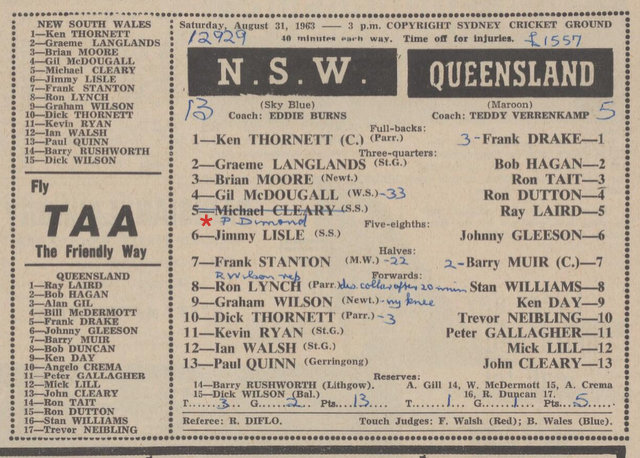 NEW SOUTH WALES
1—Ken THORNETT
2—Graeme LANGLANDS
3—Brian MOORE
4—Gil McDOUGALL
5—Michael CLEARY
6—Jimmy LISLE
7—Frank STANTON
8—Ron LYNCH
9—Graham WILSON
10—Dick THORNETT
11—Kevin RYAN
12—Ian WALSH
13—Paul QUINN
14—Barry RUSHWORTH
15—Dick WILSON
Fly
TAA
The Friendly Way
QUEENSLAND
1—Ray LAIRD
2—Bob HAGAN
3—Alan GIL
4—Bill McDERMOTT
5—Frank DRAKE
6—Johnny GLEESON
7—Barry MUIR
8—Bob DUNCAN
9—Ken DAY
10—Angelo CREMA
11—Peter GALLAGHER
12—Mick LILL
13—John CLEARY
14—Ron TAIT
15—Ron DUTTON
16—Stan WILLIAMS
17—Trevor NEIBLING
Saturday, August 31, 1963 — 3 p.m. COPYRIGHT SYDNEY CRICKET GROUND
12929 40 minutes each way. Time off for injuries. £1557
N.S.W. QUEENSLAND
(Sky Blue) (Maroon)
13 Coach: EDDIE BURNS Coach: TEDDY VERRENKAMP 5
Full-backs:
1—Ken THORNETT (C.) (Parr.) 3-Frank DRAKE—1
Three-quarters:
2—Graeme LANGLANDS (St.G.) Bob HAGAN—2
3—Brian MOORE (Newt.) Ron TAIT—3
4—Gil McDOUGALL (W.S.)-33 Ron DUTTON—4
5—Michael CLEARY (S.S.) Ray LAIRD—5
* P Dimond
Five-eighths:
6—Jimmy LISLE (S.S.) Johnny GLEESON—6
Halves:
7—Frank STANTON (M.W.)-22 2-Barry MUIR (C.)—7
R Wilson rep Forwards:
8—Ron LYNCH (Parr.) dis. collar after 20 min Stan WILLIAMS—8
9—Graham WILSON (Newt.)-inj knee Ken DAY—9
10—Dick THORNETT (Parr.)-3 Trevor NEIBLING—10
11—Kevin RYAN (St.G.) Peter GALLAGHER—11
12—Ian WALSH (St.G.) Mick LILL—12
13—Paul QUINN (Gerringong) John CLEARY—13
Reserves:
14—Barry RUSHWORTH (Lithgow). A. Gill 14, W. McDermott 15, A. Crema
15—Dick WILSON (Bal.) 16, R. Duncan 17.
T....3.... G....2.... Pts...13.... T....1.... G....1.... Pts...5....
Referee: R. DIFLO. Touch Judges: F. Walsh (Red); B. Wales (Blue).